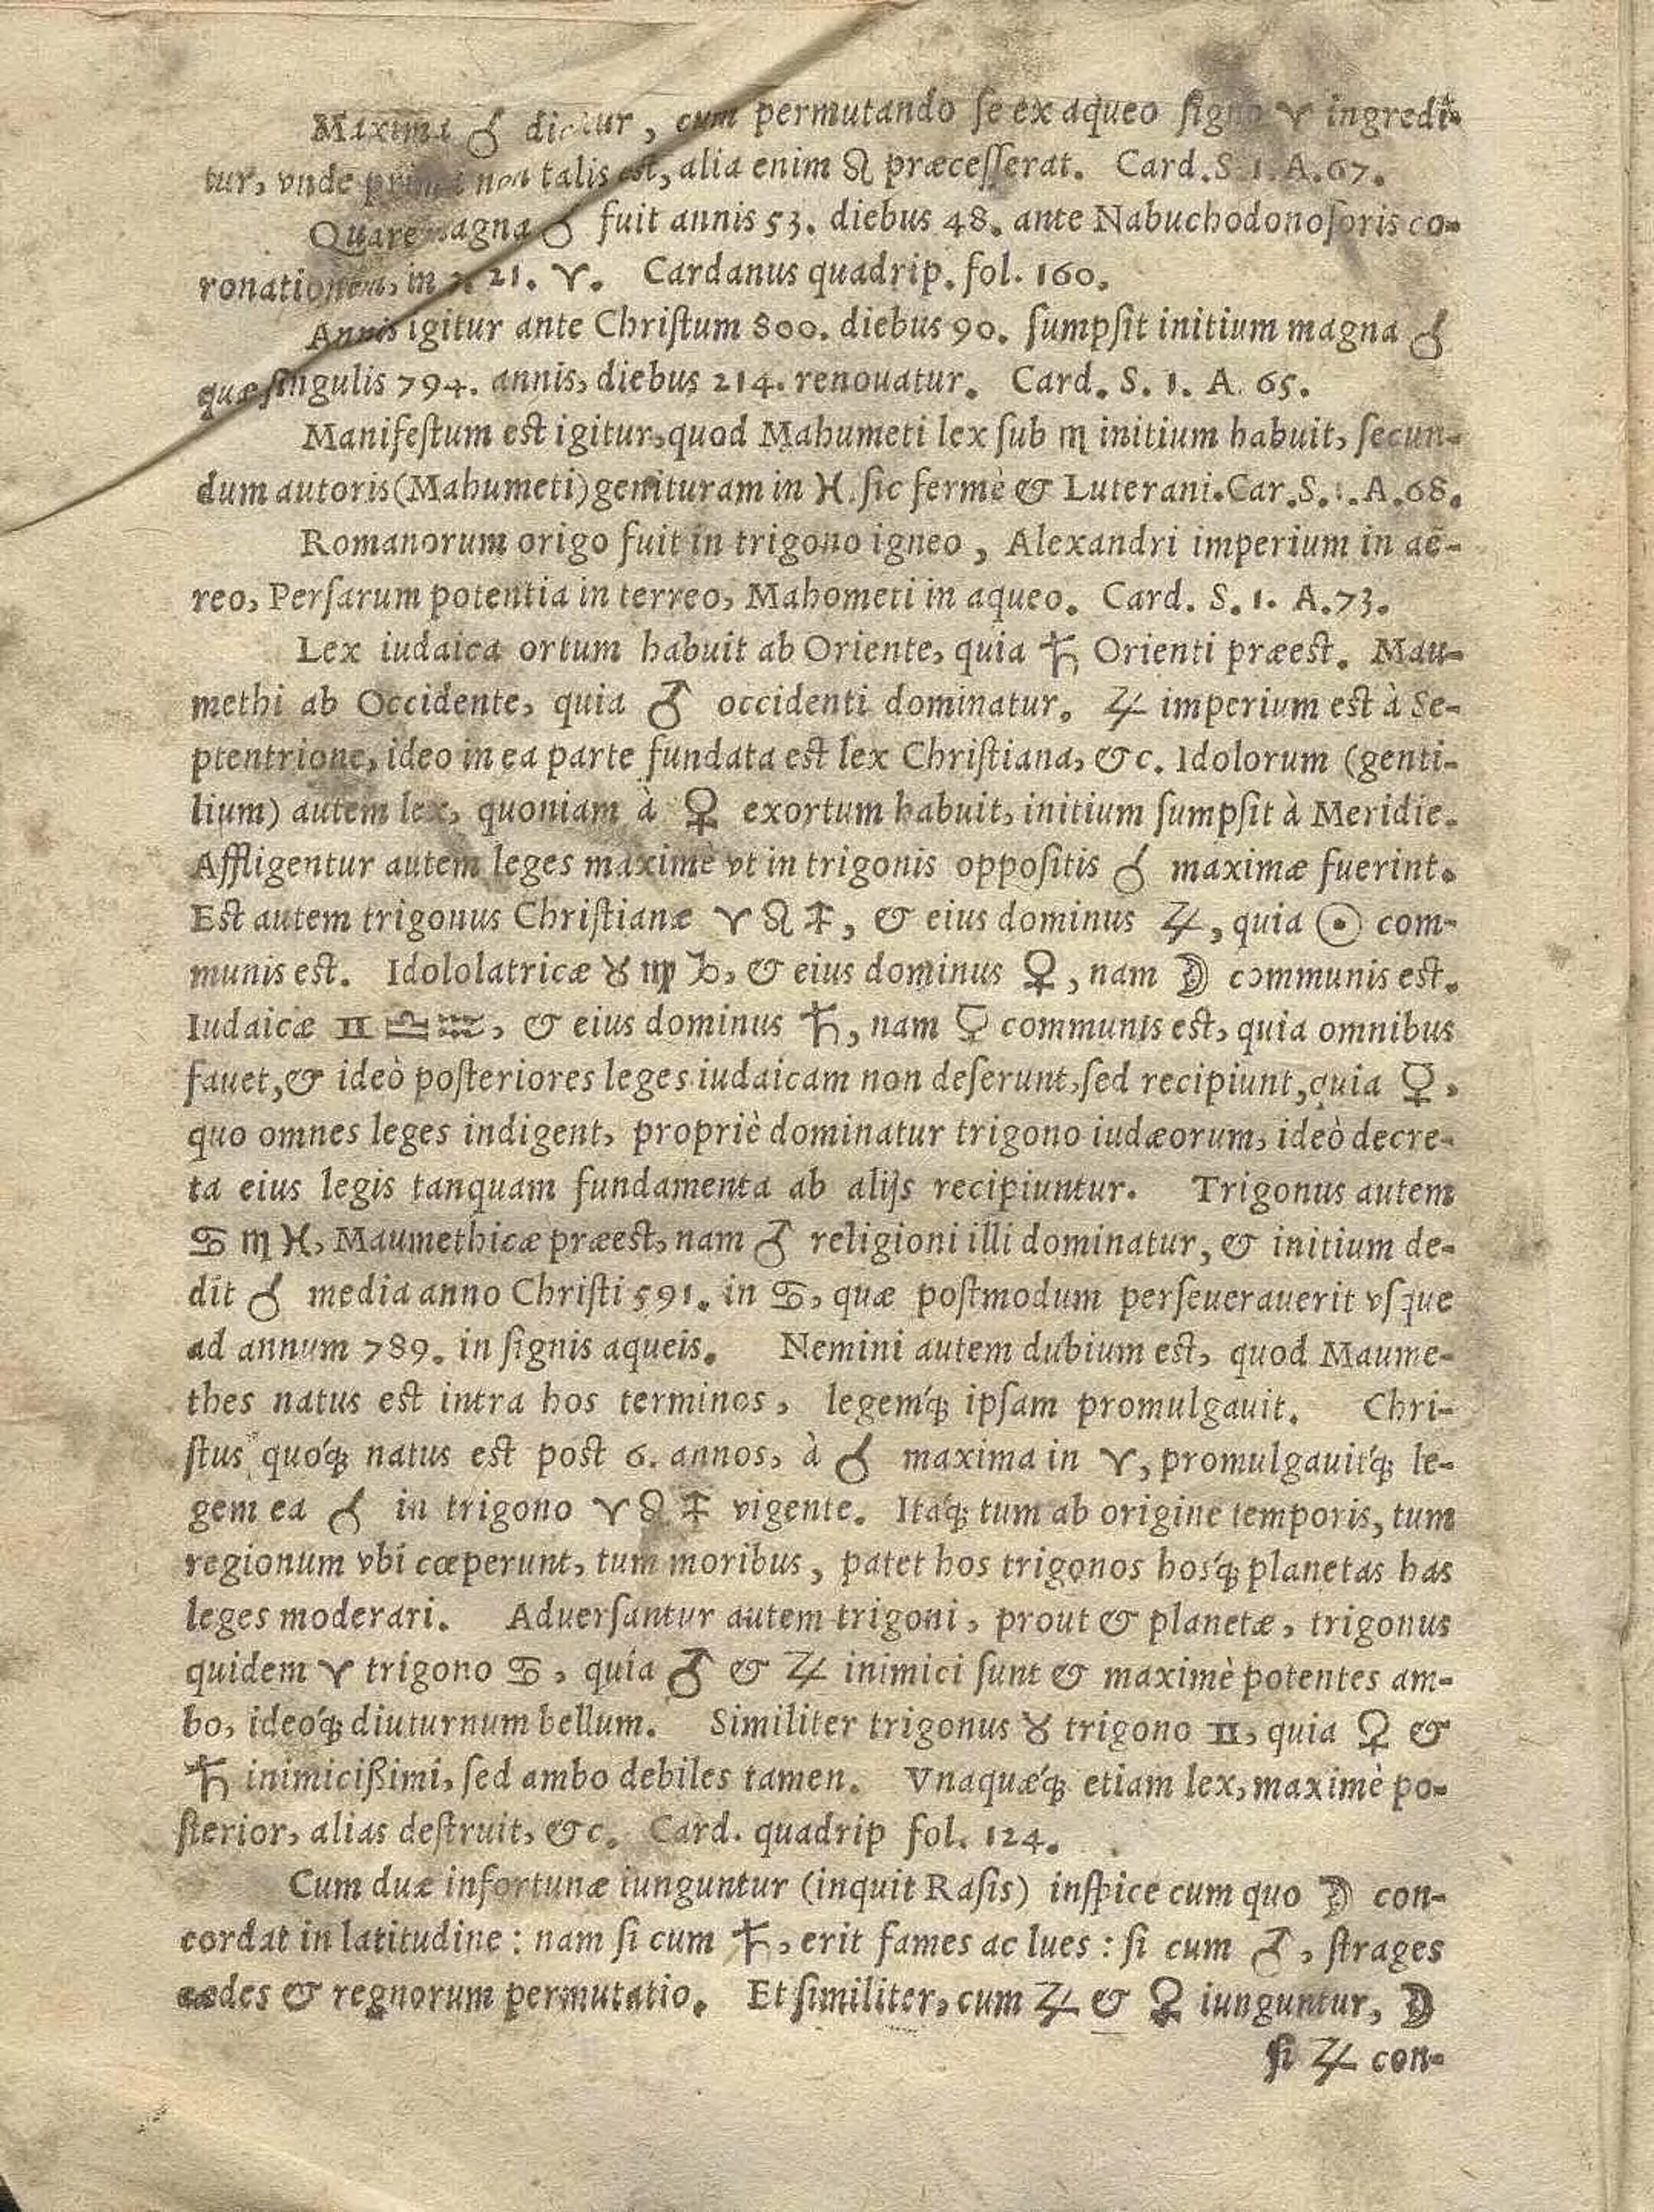 Maxima ☌ dicitur, cum permutando ſe ex aqueo ſigno ♈ ingredi-
tur, vnde prima non talis est, alia enim ♌ præceſſerat. Card. S. 1. A. 67.
Quare magna ☌ fuit annis 53. diebus 48. ante Nabuchodonoſoris co-
ronationem, in 21. ♈. Cardanus quadrip. fol. 160.
Annis igitur ante Chriſtum 800. diebus 90. ſumpſit initium magna ☌
quæ ſingulis 794. annis, diebus 214. renouatur. Card. S. 1. A. 65.
Manifeſtum est igitur, quod Mahumeti lex ſub ♏ initium habuit, ſecun-
dum autoris (Mahumeti) genituram in ♓. ſic fermè & Luterani. Car. S. 1. A. 68.
Romanorum origo fuit in trigono igneo, Alexandri imperium in aë-
reo, Perſarum potentia in terreo, Mahometi in aqueo. Card. S. 1. A. 73.
Lex iudaica ortum habuit ab Oriente, quia ♄ Orienti præest. Mau-
methi ab Occidente, quia ♂ occidenti dominatur. ♃ imperium est à Se-
ptentrione, ideo in ea parte fundata est lex Chriſtiana, &c. Idolorum (genti-
lium) autem lex, quoniam à ♀ exortum habuit, initium ſumpſit à Meridie.
Affligentur autem leges maximè vt in trigonis oppoſitis ☌ maximæ fuerint.
Est autem trigonus Chriſtianæ ♈ ♌ ♐, & eius dominus ♃, quia ☉ com-
munis est. Idololatricæ ♉ ♍ ♑, & eius dominus ♀, nam ☽ communis est.
Iudaicæ ♊ ♎ ♒, & eius dominus ♄, nam ☿ communis est, quia omnibus
fauet, & ideò poſteriores leges iudaicam non deſerunt, ſed recipiunt, quia ☿,
quo omnes leges indigent, propriè dominatur trigono iudæorum, ideò decre-
ta eius legis tanquam fundamenta ab alijs recipiuntur. Trigonus autem
♋ ♏ ♓, Maumethicæ præest, nam ♂ religioni illi dominatur, & initium de-
dit ☌ media anno Chriſti 591. in ♋, quæ poſtmodum perſeuerauerit vſque
ad annum 789. in ſignis aqueis. Nemini autem dubium est, quod Maume-
thes natus est intra hos terminos, legemq́; ipſam promulgauit. Chri-
ſtus quoq́; natus est post 6. annos, à ☌ maxima in ♈, promulgauitq́; le-
gem ea ☌ in trigono ♈ ♌ ♐ vigente. Itaq́; tum ab origine temporis, tum
regionum vbi cœperunt, tum moribus, patet hos trigonos hosq́; planetas has
leges moderari. Aduerſantur autem trigoni, prout & planetæ, trigonus
quidem ♈ trigono ♋, quia ♂ & ♃ inimici ſunt & maximè potentes am-
bo, ideoq́; diuturnum bellum. Similiter trigonus ♉ trigono ♊, quia ♀ &
♄ inimicißimi, ſed ambo debiles tamen. Vnaquæq́; etiam lex, maximè po-
ſterior, alias deſtruit, &c. Card. quadrip fol. 124.
Cum duæ infortunæ iunguntur (inquit Raſis) inſpice cum quo ☽ con-
cordat in latitudine: nam ſi cum ♄, erit fames ac lues: ſi cum ♂, ſtrages
cædes & regnorum permutatio. Et ſimiliter, cum ♃ & ♀ iunguntur, ☽
ſi ♃ con-